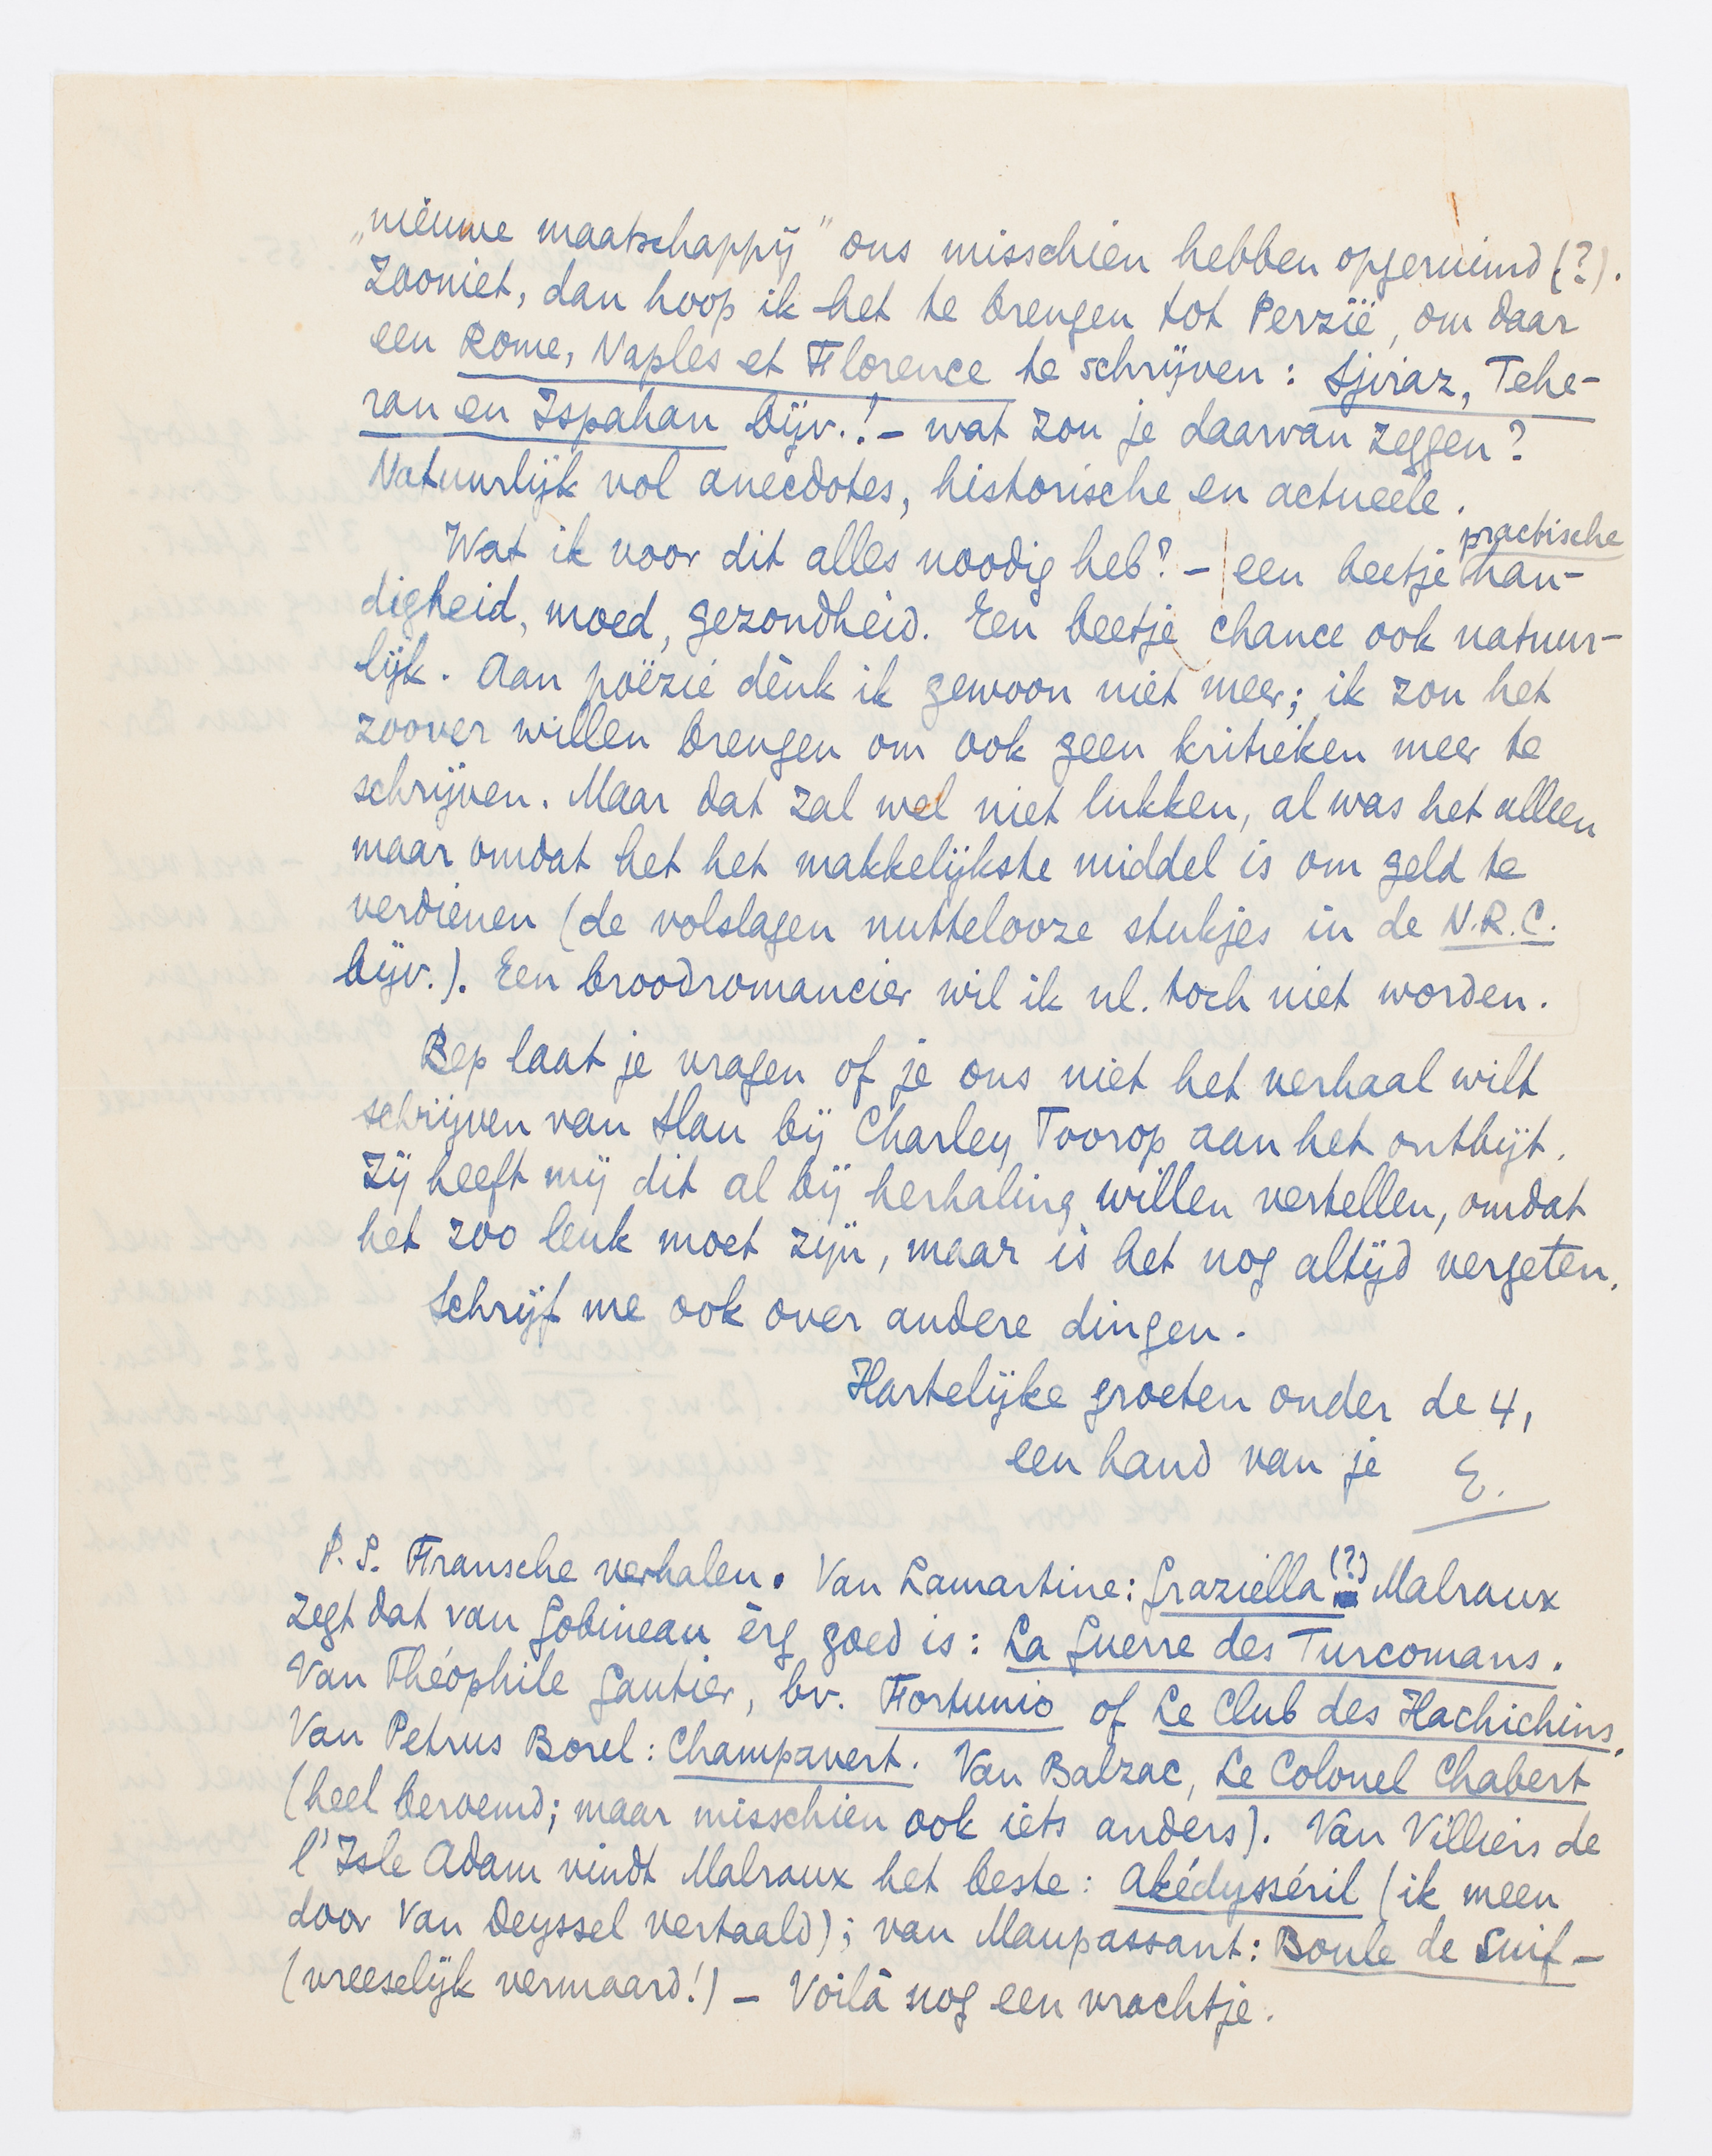 „nieuwe maatschappij” ons misschien hebben opgeruimd (?).
Zooniet, dan hoop ik het te brengen tot Perzië, om daar
een Rome, Naples et Florence te schrijven: Sjiraz, Tehe-
ran en Ispahan bijv.! – wat zou je daarvan zeggen?
Natuurlijk vol anecdotes, historische en actueele.
Wat ik voor dit alles noodig heb? – een beetje practische han-
digheid, moed, gezondheid. Een beetje chance ook natuur-
lijk. Aan poëzie dènk ik gewoon niet meer; ik zou het
zoover willen brengen om ook geen kritieken meer te
schrijven. Maar dat zal wel niet lukken, al was het alleen
maar omdat het het makkelijkste middel is om geld te
verdienen (de volslagen nuttelooze stukjes in de N.R.C.
bijv.). Een broodromancier wil ik nl. toch niet worden.
Bep laat je vragen of je ons niet het verhaal wilt
schrijven van Han bij Charley Toorop aan het ontbijt.
Zij heeft mij dit al bij herhaling willen vertellen, omdat
het zoo leuk moet zijn, maar is het nog altijd vergeten.
Schrijf me ook over andere dingen.
Hartelijke groeten onder de 4,
een hand van je E.
P.S. Fransche verhalen. Van Lamartine: Graziella (?) Malraux
zegt dat van Gobineau èrg goed is: La Guerre des Turcomans.
Van Théophile Gautier, bv. Fortunio of Le Club des Hachichins.
Van Petrus Borel: Champavert. Van Balzac, Le Colonel Chabert
(heel beroemd; maar misschien ook iets anders). Van Villiers de
l'Isle Adam vindt Malraux het beste: Akédysséril (ik meen
door Van Deyssel vertaald); van Maupassant: Boule de Suif –
(vreeselijk vermaard!) – Voilà nog een vrachtje.